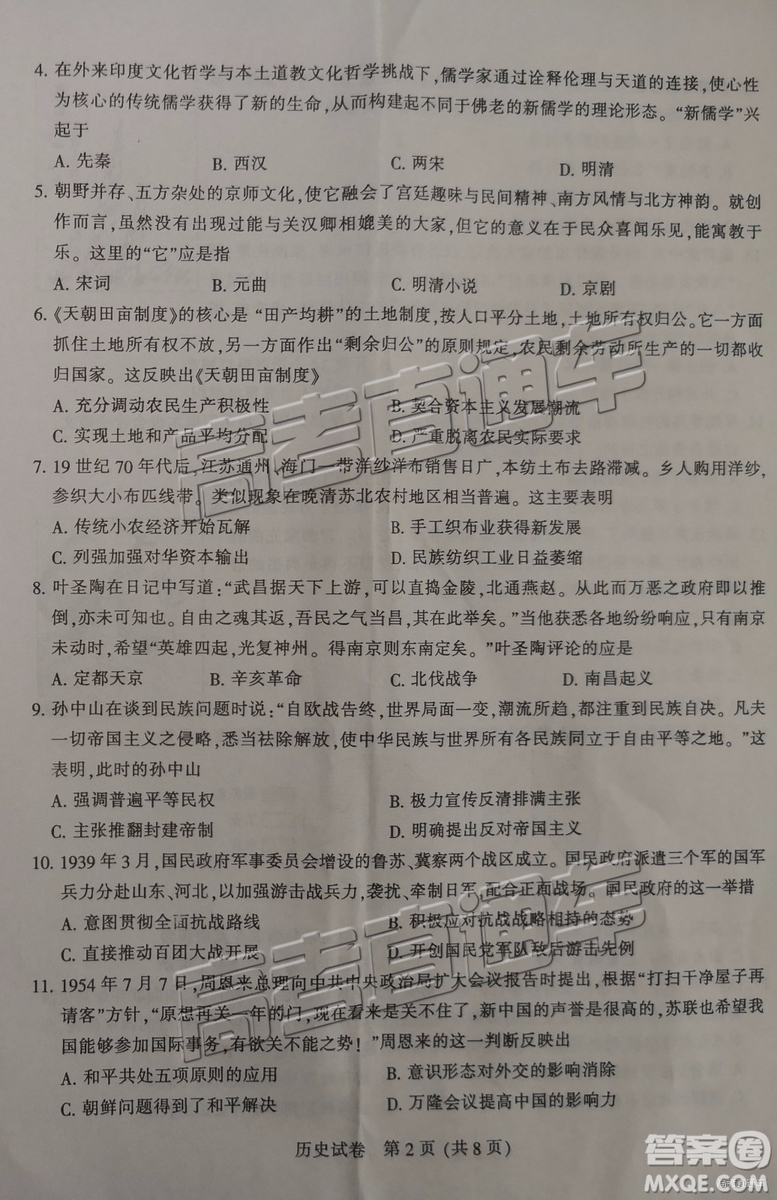 4. 在外来印度文化哲学与本土道教文化哲学挑战下,儒学家通过诠释伦理与天道的连接,使心性
为核心的传统儒学获得了新的生命,从而构建起不同于佛老的新儒学的理论形态。“新儒学”兴
起于
A. 先秦 B. 西汉 C. 两宋 D. 明清
5. 朝野并存、五方杂处的京师文化,使它融会了宫廷趣味与民间精神、南方风情与北方神韵。就创
作而言,虽然没有出现过能与关汉卿相媲美的大家,但它的意义在于民众喜闻乐见,能寓教于
乐。这里的“它”应是指
A. 宋词 B. 元曲 C. 明清小说 D. 京剧
6. 《天朝田亩制度》的核心是 “田产均耕”的土地制度,按人口平分土地,土地所有权归公。它一方面
抓住土地所有权不放,另一方面作出“剩余归公”的原则规定,农民剩余劳动所生产的一切都收
归国家。这反映出《天朝田亩制度》
A. 充分调动农民生产积极性 B. 契合资本主义发展潮流
C. 实现土地和产品平均分配 D. 严重脱离农民实际要求
7. 19 世纪 70 年代后,江苏通州、海门一带洋纱洋布销售日广,本纺土布去路滞减。乡人购用洋纱,
参织大小布匹线带。类似现象在晚清苏北农村地区相当普遍。这主要表明
A. 传统小农经济开始瓦解 B. 手工织布业获得新发展
C. 列强加强对华资本输出 D. 民族纺织工业日益萎缩
8. 叶圣陶在日记中写道:“武昌据天下上游,可以直捣金陵,北通燕赵。从此而万恶之政府即以推
倒,亦未可知也。自由之魂其返,吾民之气当昌,其在此举矣。”当他获悉各地纷纷响应,只有南京
未动时,希望“英雄四起,光复神州。得南京则东南定矣。”叶圣陶评论的应是
A. 定都天京 B. 辛亥革命 C. 北伐战争 D. 南昌起义
9. 孙中山在谈到民族问题时说:“自欧战告终,世界局面一变,潮流所趋,都注重到民族自决。凡夫
一切帝国主义之侵略,悉当祛除解放,使中华民族与世界所有民族同立于自由平等之地。”这
表明,此时的孙中山
A. 强调普遍平等民权 B. 极力宣传反清排满主张
C. 主张推翻封建帝制 D. 明确提出反对帝国主义
10. 1939 年 3 月,国民政府军事委员会增设的鲁苏、冀察两个战区成立。国民政府派遣三个军的国军
兵力分赴山东、河北,以加强游击战兵力,袭扰、牵制日军,配合正面战场。国民政府的这一举措
A. 意图贯彻全面抗战路线 B. 积极应对抗战战略相持的态势
C. 直接推动百团大战开展 D. 开创国民党军队敌后游击先例
11. 1954 年 7 月 7 日,周恩来总理向中共中央政治局扩大会议报告时提出,根据“打扫干净屋子再
请客”方针,“原想再关一年的门,现在看来是关不了的,新中国的声誉是很高的,苏联也希望我
国能够参加国际事务,有欲关不能之势!”周恩来的这一判断反映出
A. 和平共处五项原则的应用 B. 意识形态对外交的影响消除
C. 朝鲜问题得到了和平解决 D. 万隆会议提高中国的影响力
历史试卷 第 2 页 (共 8 页)
高考直通车
高考直通车
答案圈
MXQE.COM